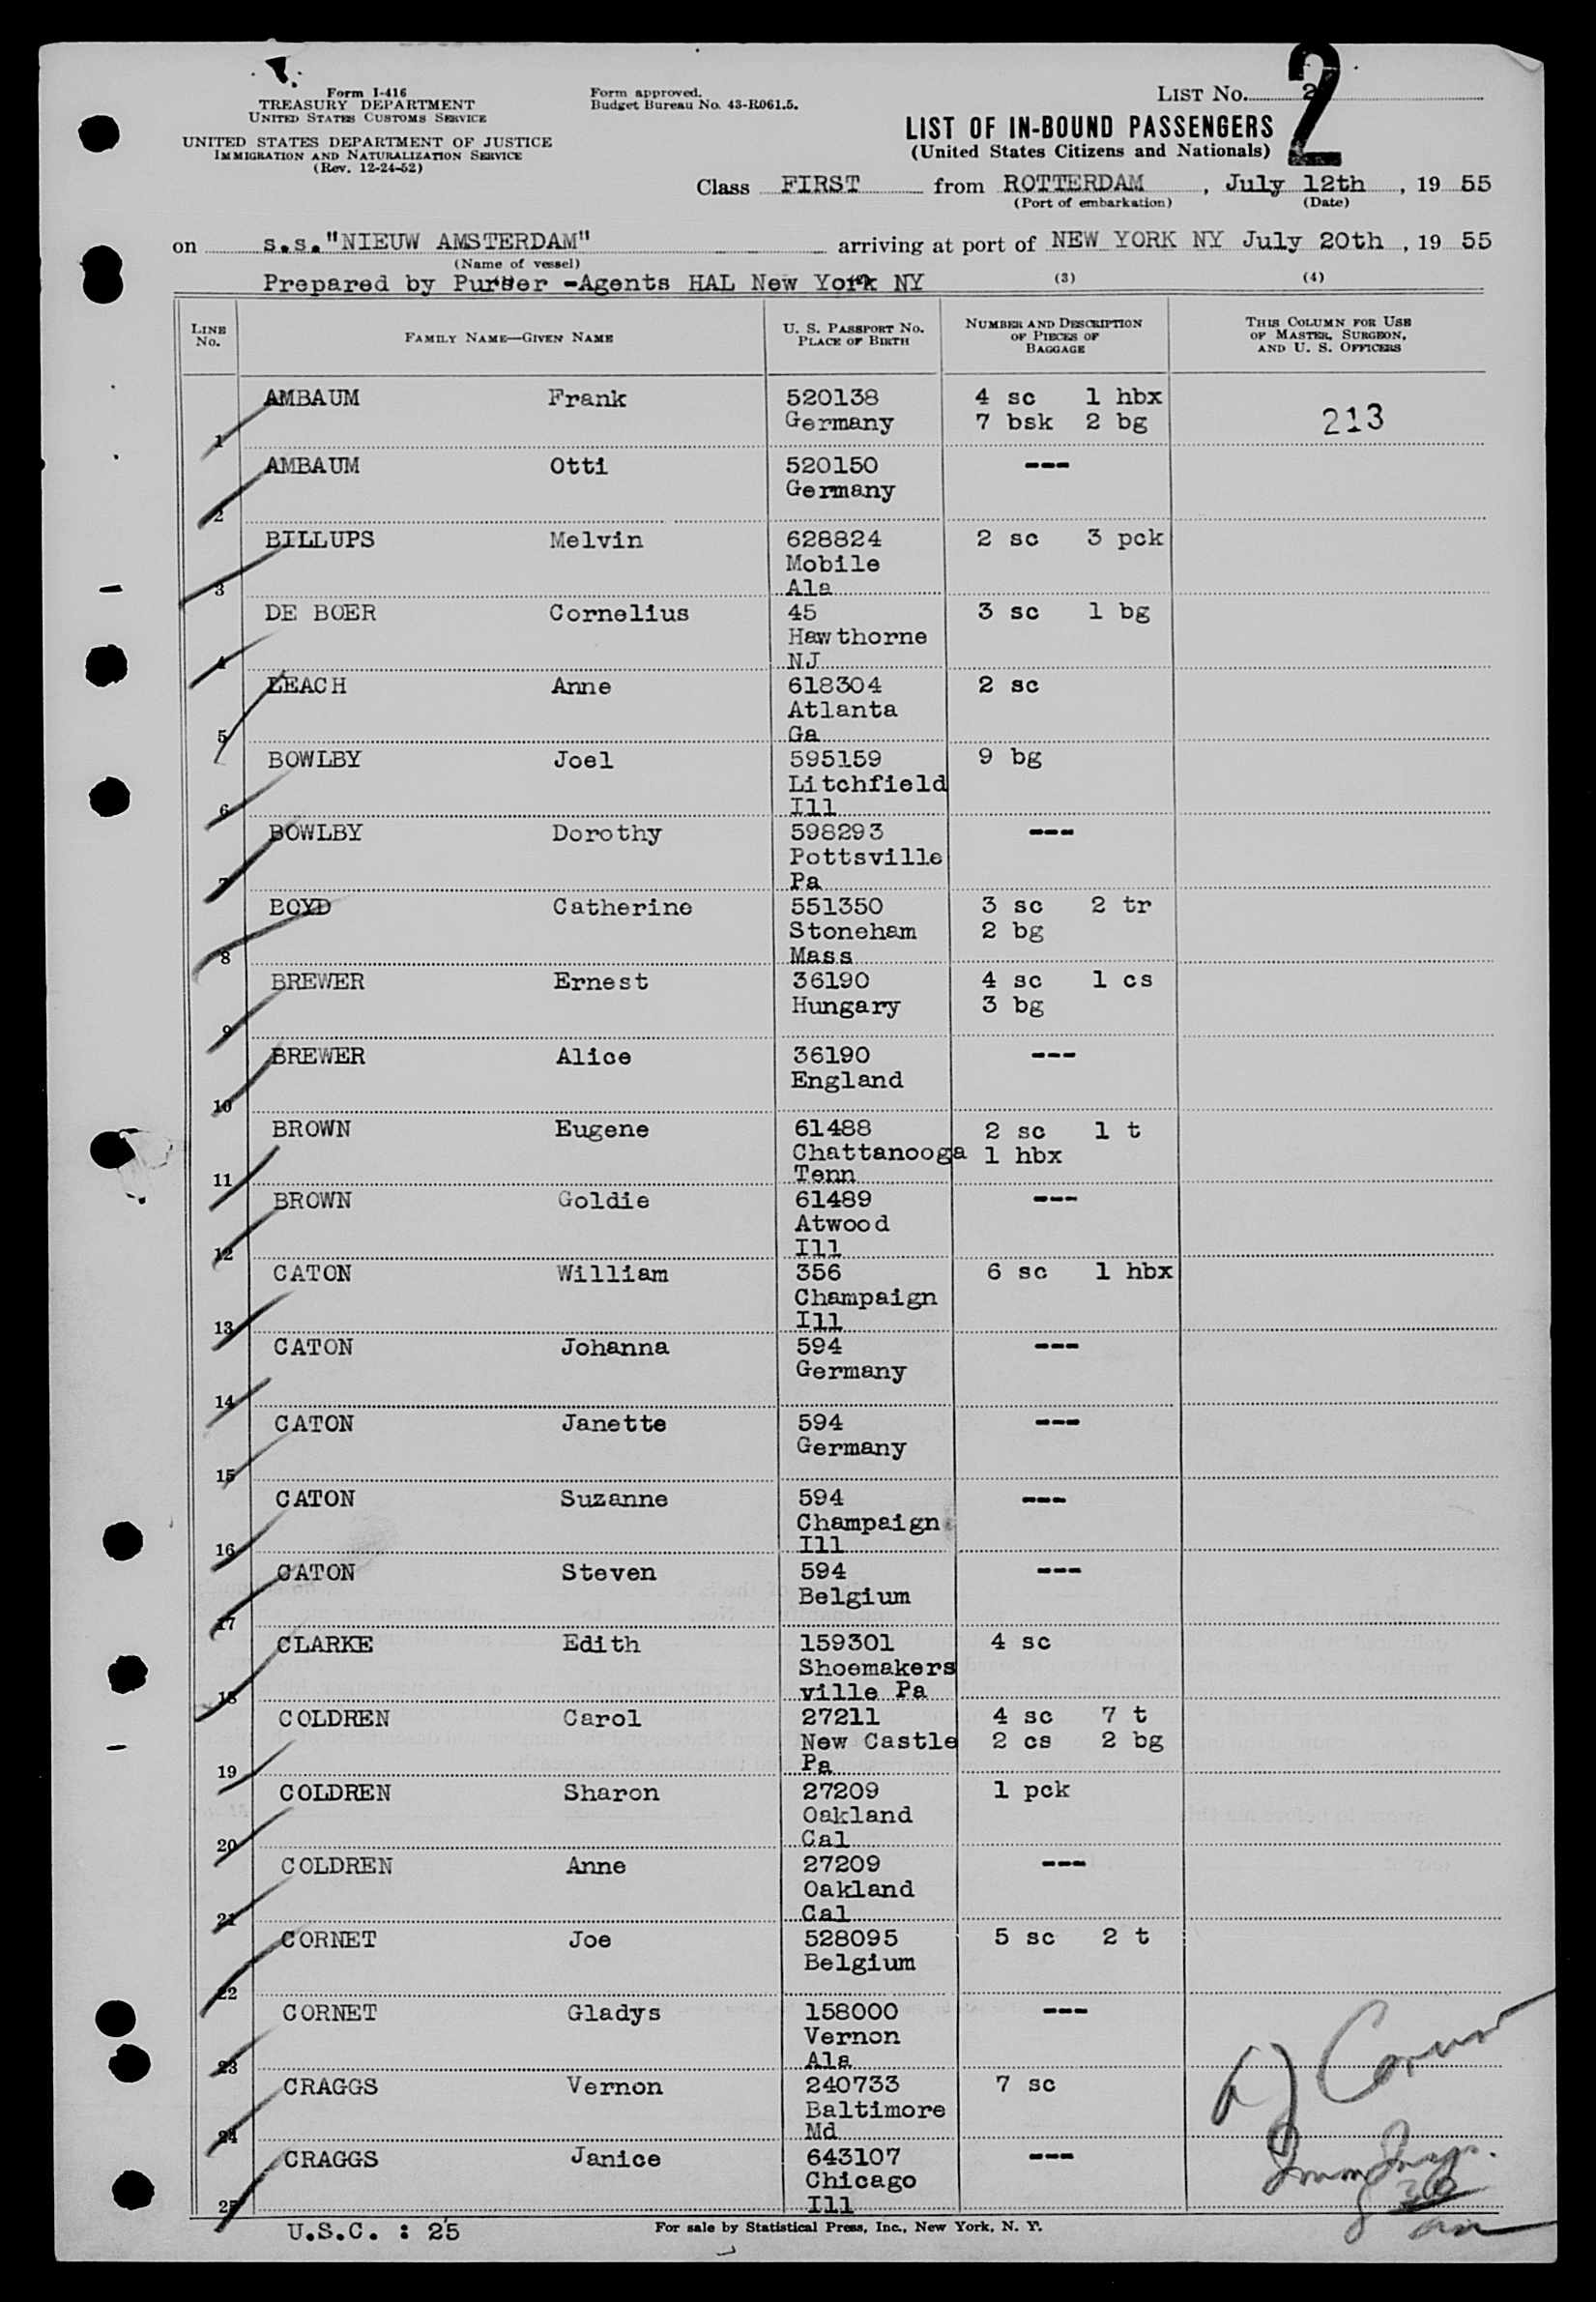 Form I-416
TREASURY DEPARTMENT
UNITED STATES CUSTOMS SERVICE
UNITED STATES DEPARTMENT OF JUSTICE
IMMIGRATION AND NATURALIZATION SERVICE
(Rev. 12-24-52)
Form approved.
Budget Bureau No. 43-R061.5.
LIST NO. 2
2
LIST OF IN-BOUND PASSENGERS
(United States Citizens and Nationals)
Class FIRST from ROTTERDAM, July 12th, 19 55
(Port of embarkation) (Date)
on s.s."NIEUW AMSTERDAM" arriving at port of NEW YORK NY July 20th, 19 55
(Name of vessel)
Prepared by Purser -Agents HAL New York NY (3) (4)
LINE NO. FAMILY NAME—GIVEN NAME U. S. PASSPORT NO. PLACE OF BIRTH NUMBER AND DESCRIPTION OF PIECES OF BAGGAGE THIS COLUMN FOR USE OF MASTER, SURGEON, AND U. S. OFFICERS
AMBAUM Frank 520138 4 sc 1 hbx
1 Germany 7 bsk 2 bg 213
AMBAUM Otti 520150 ---
2 Germany
BILLUPS Melvin 628824 2 sc 3 pck
Mobile
3 Ala
DE BOER Cornelius 45 3 sc 1 bg
Hawthorne
4 NJ
LEACH Anne 618304 2 sc
Atlanta
5 Ga
BOWLBY Joel 595159 9 bg
Litchfield
6 Ill
BOWLBY Dorothy 598293 ---
Pottsville
7 Pa
BOYD Catherine 551350 3 sc 2 tr
Stoneham 2 bg
8 Mass
BREWER Ernest 36190 4 sc 1 cs
9 Hungary 3 bg
BREWER Alice 36190 ---
10 England
BROWN Eugene 61488 2 sc 1 t
Chattanooga 1 hbx
11 Tenn
BROWN Goldie 61489 ---
Atwood
12 Ill
CATON William 356 6 sc 1 hbx
Champaign
13 Ill
CATON Johanna 594 ---
14 Germany
CATON Janette 594 ---
15 Germany
CATON Suzanne 594 ---
Champaign
16 Ill
CATON Steven 594 ---
17 Belgium
CLARKE Edith 159301 4 sc
Shoemakers
18 ville Pa
COLDREN Carol 27211 4 sc 7 t
New Castle 2 cs 2 bg
19 Pa
COLDREN Sharon 27209 1 pck
Oakland
20 Cal
COLDREN Anne 27209 ---
Oakland
21 Cal
CORNET Joe 528095 5 sc 2 t
22 Belgium
CORNET Gladys 158000 ---
Vernon
23 Ala
CRAGGS Vernon 240733 7 sc
Baltimore
24 Md
CRAGGS Janice 643107 ---
Chicago
25 Ill
U.S.C. : 25 For sale by Statistical Press, Inc., New York, N. Y.